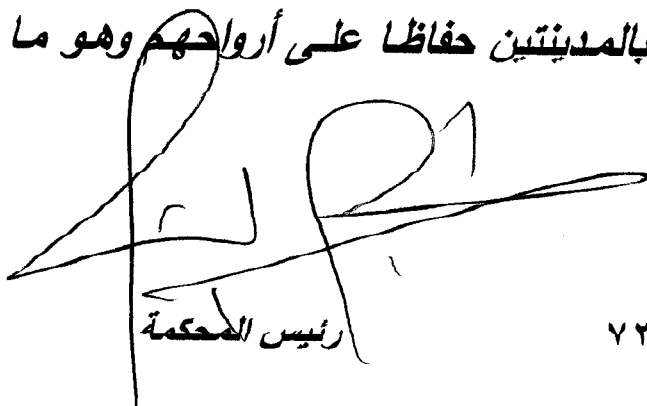 بالمدينتين حفاظا على أرواحهم وهو ما
رئيس المحكمة
٧٢